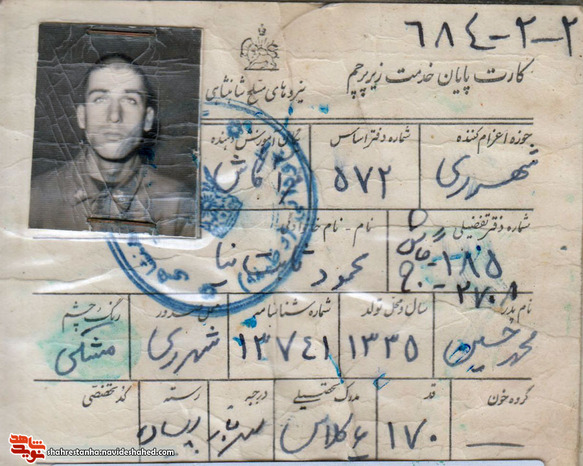 ۶۸۴-۲-۲
کارت پایان خدمت زیر پرچم
نیروهای مسلح شاهنشاهی
حوزه اعزام کننده
شماره دفتر اساس
شهرری
۵۷۲
شماره دفتر تفضیلی
نام - نام
۱۸۵
۲۷۰۸
محمود
نام پدر
سال و محل تولد
شماره شناسنامه
رنگ چشم
محمد حسین
۱۳۳۵
۱۳۷۴۱
شهرری
مشکی
گروه خون
قد
مدرک تحصیلی
درجه
رسته
کد تخصصی
۱۷۰
۶ کلاس
سرباز
پیاده
shahrestanha.navideshahed.com